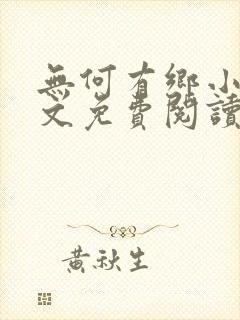 無何有鄉小
文免費閱讀
黃秋生